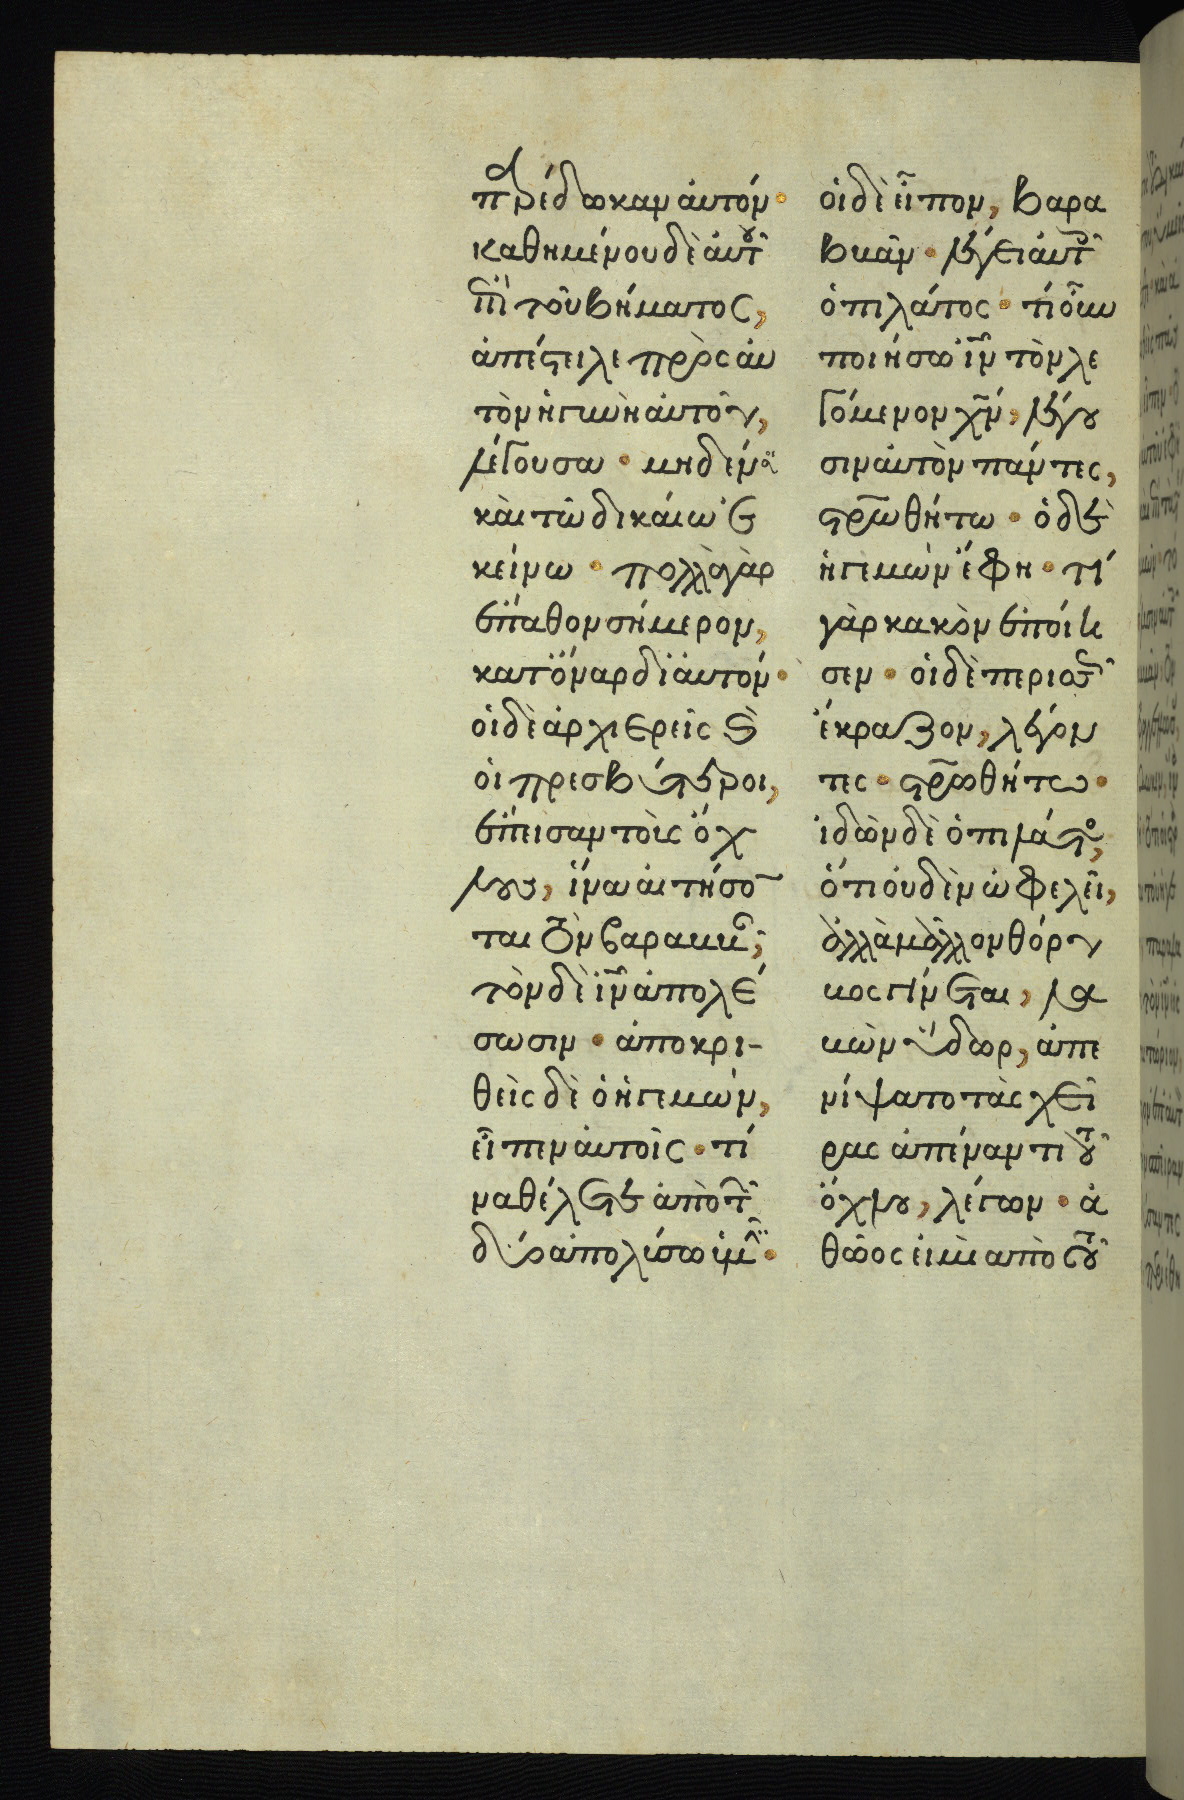 πρέδωκαν αὐτόν·
καθημένου δὲ αὐτοῦ
ἐπὶ τοῦ βήματος,
ἀπέστειλε πρὸς αὐ
τὸν ἡ γυνὴ αὐτοῦ,
λέγουσα· μηδέν σοι
καὶ τῷ δικαίῳ ἐ
κείνῳ· πολλὰ γὰρ
ἔπαθον σήμερον,
κατ' ὄναρ δι' αὐτόν·
οἱ δὲ ἀρχιερεῖς καὶ
οἱ πρεσβύτεροι,
ἔπεισαν τοὺς ὄχ
λους, ἵνα αἰτήσον
ται τὸν βαραββᾶν,
τὸν δὲ ἰν ἀπολέ
σωσιν· ἀποκρι-
θεὶς δὲ ὁ ἡγεμών,
εἶπεν αὐτοῖς· τί
να θέλετε ἀπὸ τῶν
δύο ἀπολύσω ὑμῖν·
οἱ δὲ εἶπον, βαρα
ββᾶν· λέγει αὐτοῖς
ὁ πιλάτος· τί οὖν
ποιήσω ἰν τὸν λε
γόμενον χν, λέγου
σιν αὐτὸν πάντες,
σταυρωθήτω· ὁ δὲ
ἡγεμὼν ἔφη· τί
γὰρ κακὸν ἐποίη
σεν· οἱ δὲ περισσῶς
ἔκραζον, λέγον
τες· σταυρωθήτω·
ἰδὼν δὲ ὁ πιλάτος,
ὅτι οὐδὲν ὠφελεῖ,
ἀλλὰ μᾶλλον θόρυ
βος γίνεται, λα
βὼν ὕδωρ, ἀπε
νίψατο τὰς χεῖ
ρας ἀπέναντι τοῦ
ὄχλου, λέγων· ἀ
θῷός εἰμι ἀπὸ τοῦ